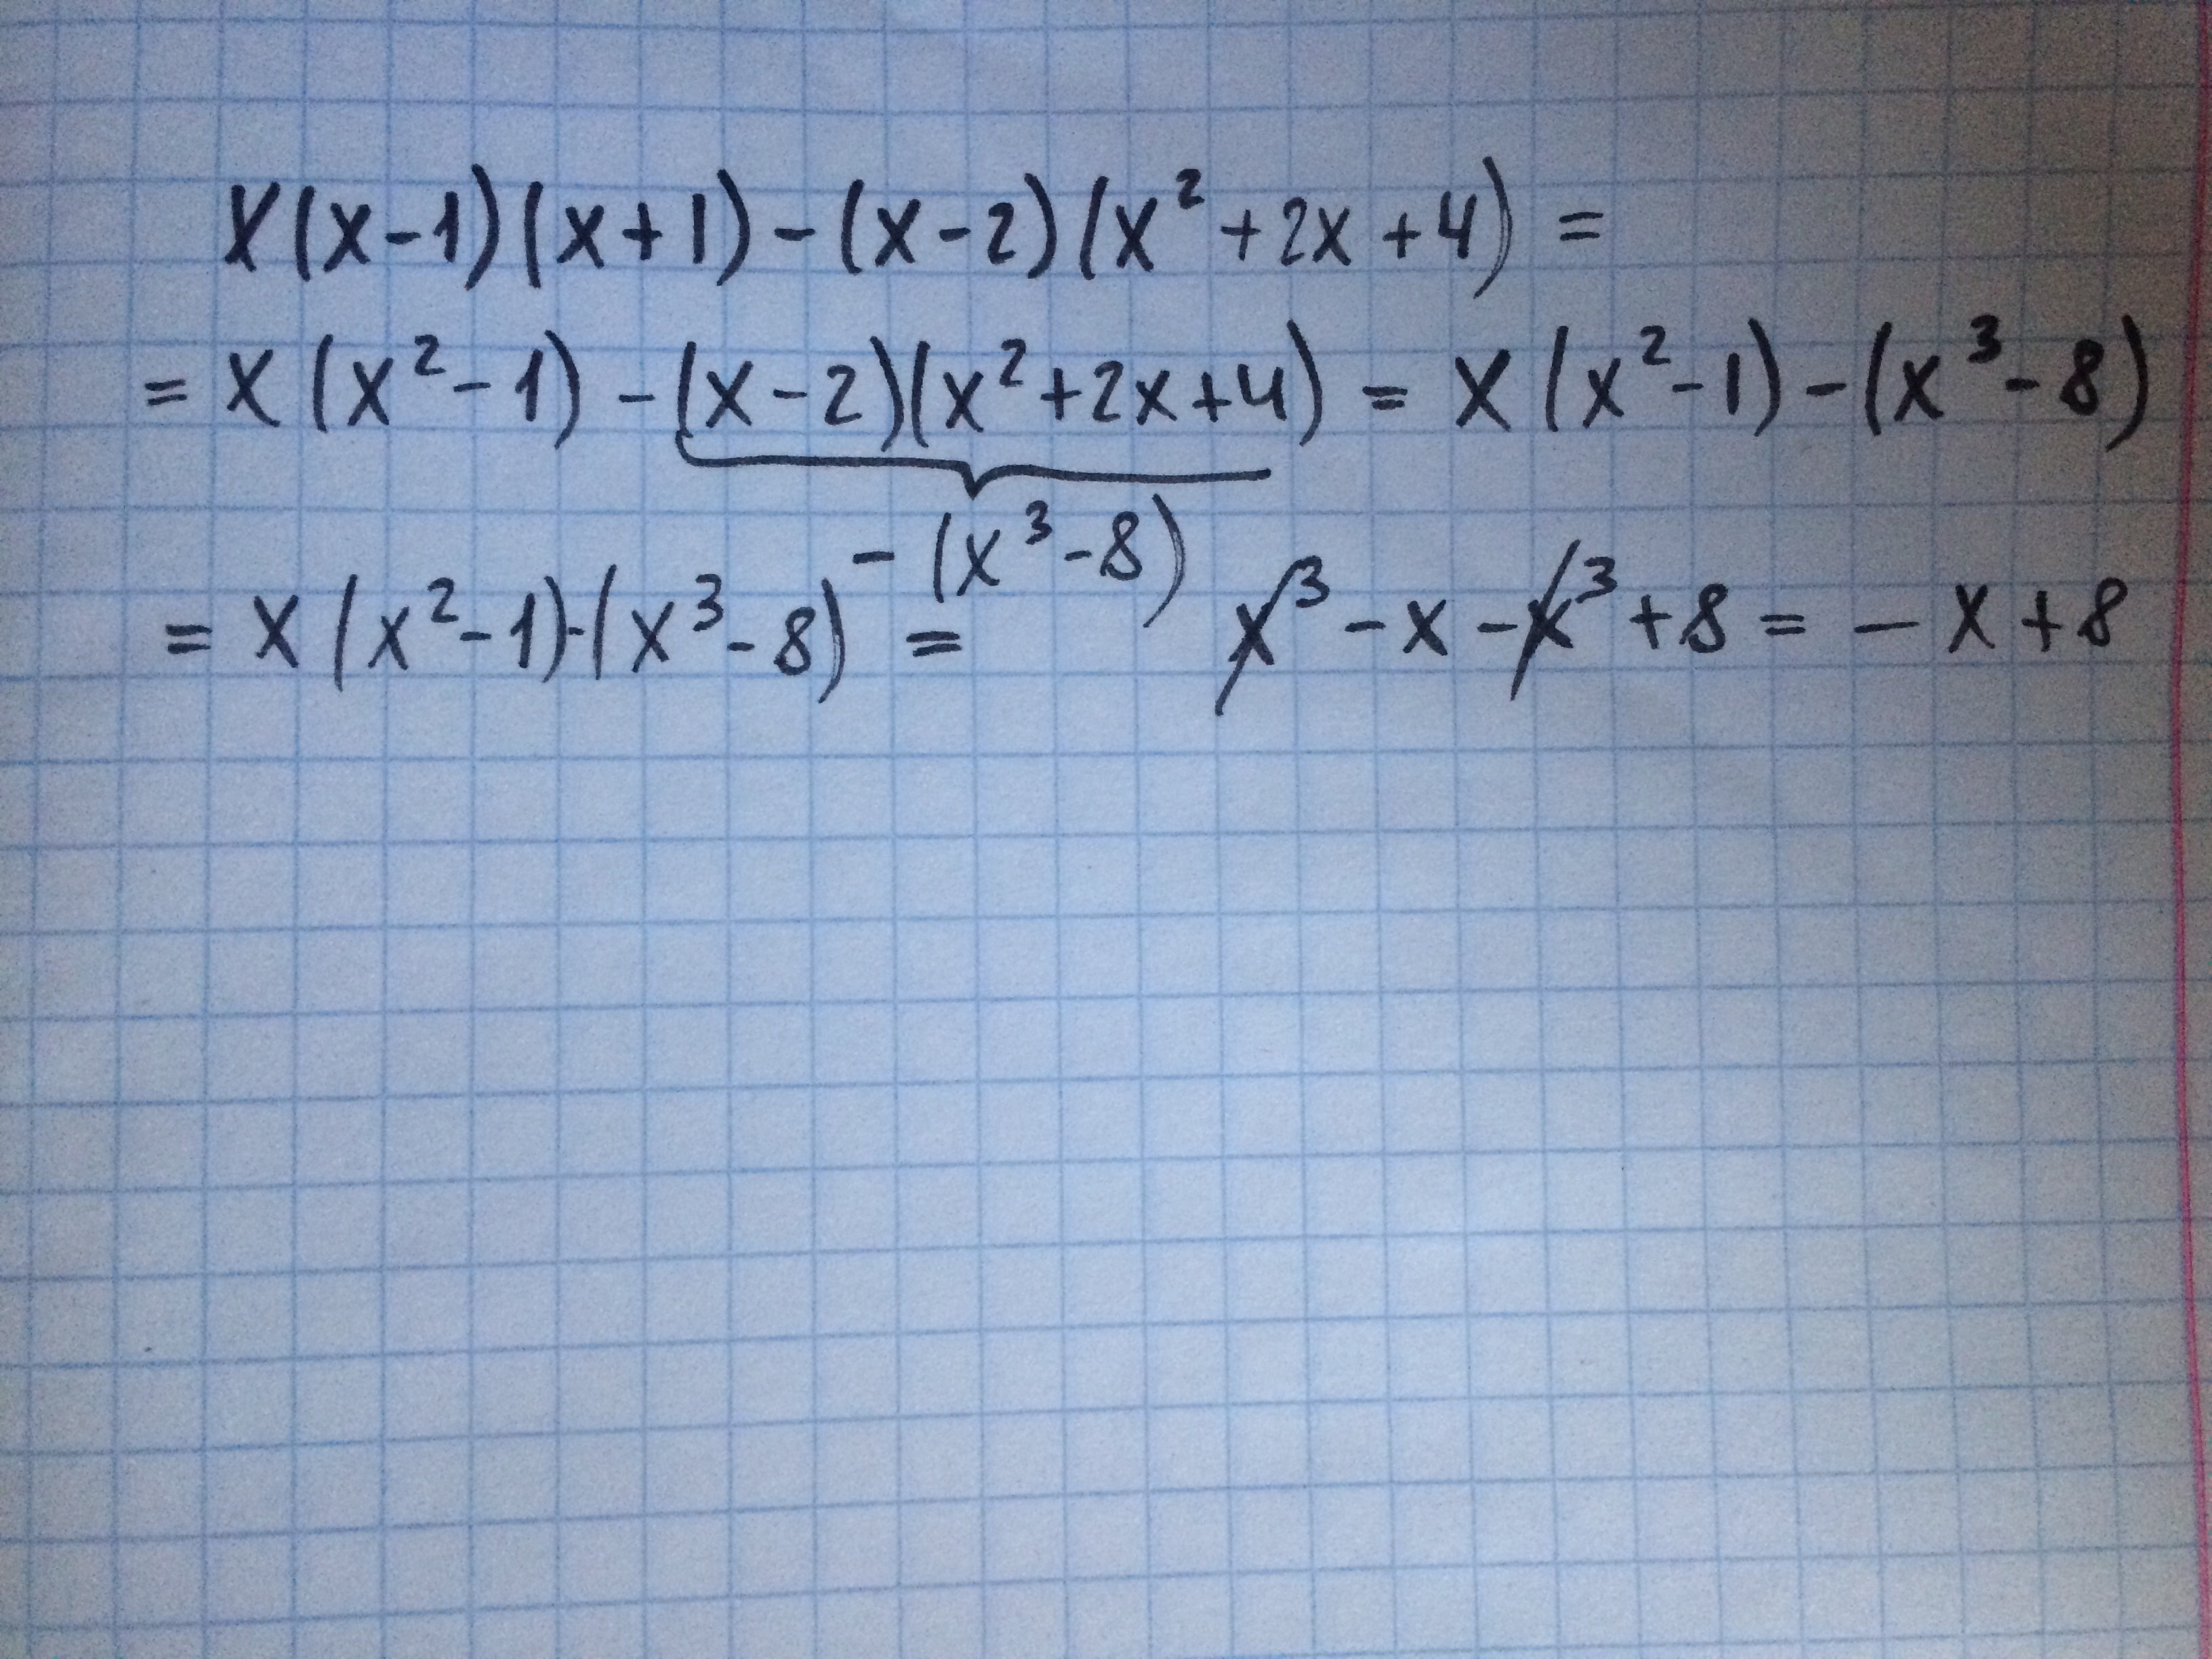 x(x-1)(x+1)-(x-2)(x²+2x+4)=
=x(x²-1)-(x-2)(x²+2x+4)=x(x²-1)-(x³-8)
-(x³-8)
=x(x²-1)-(x³-8)= x³-x-x³+8=-x+8